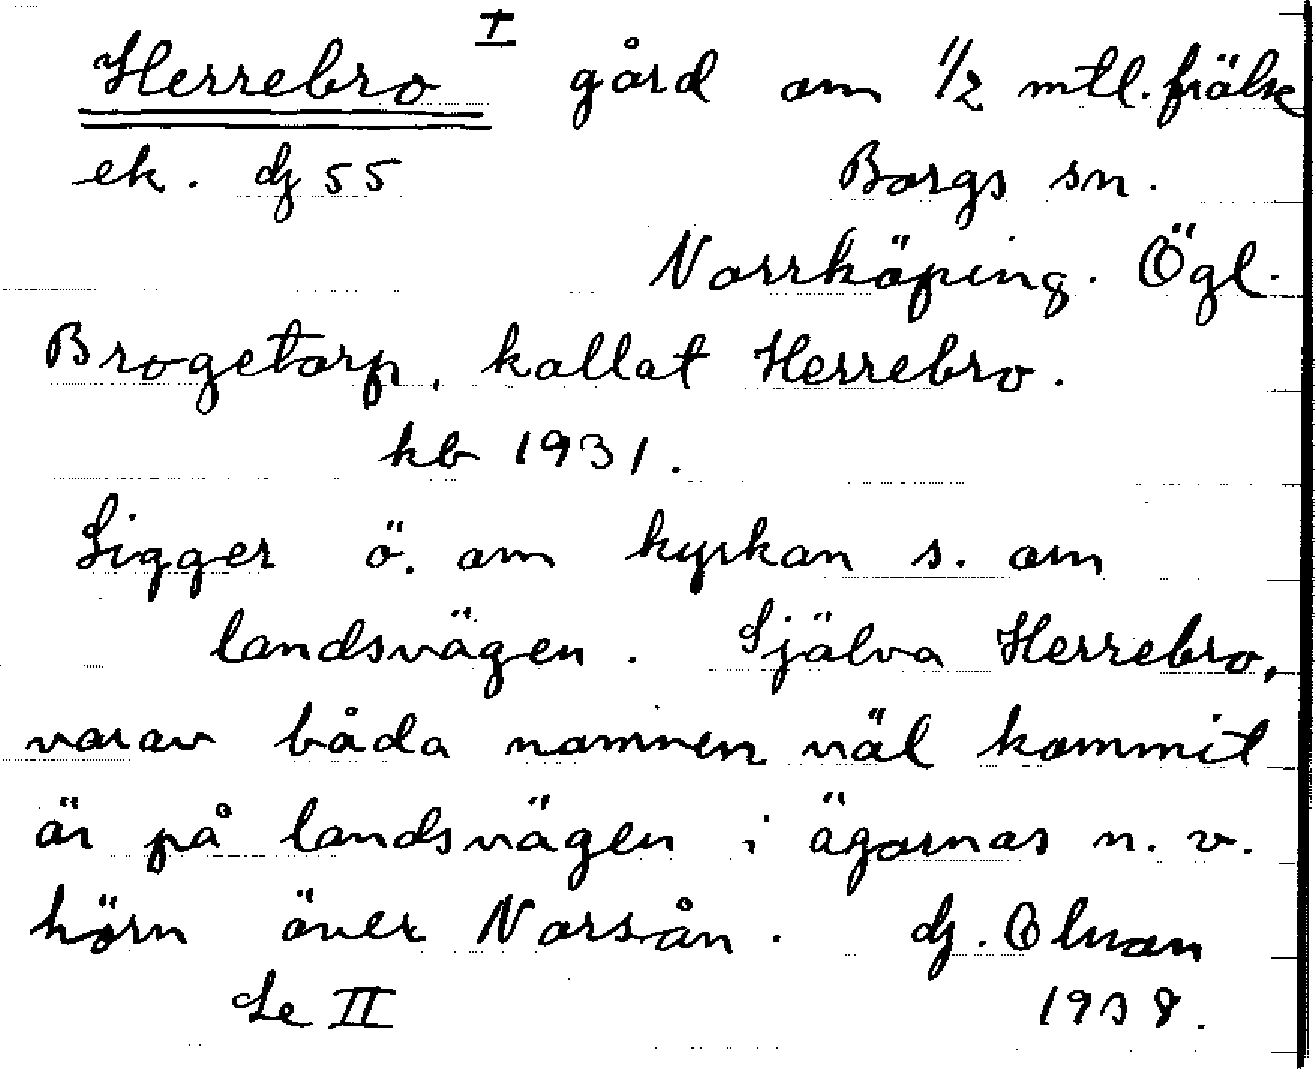 Herrebro I gård om 1/2 mtl. frälse
ek. dj 55 Borgs sn.
Norrköping. Ögl.
Brogetorp, kallat Herrebro.
kb 1931.
Ligger ö. om kyrkan s. om
landsvägen. Själva Herrebro,
varav båda namnen väl kommit
är på landsvägen i ägornas n. v.
hörn över Norsån. dj. Olnan
Se II 1938.